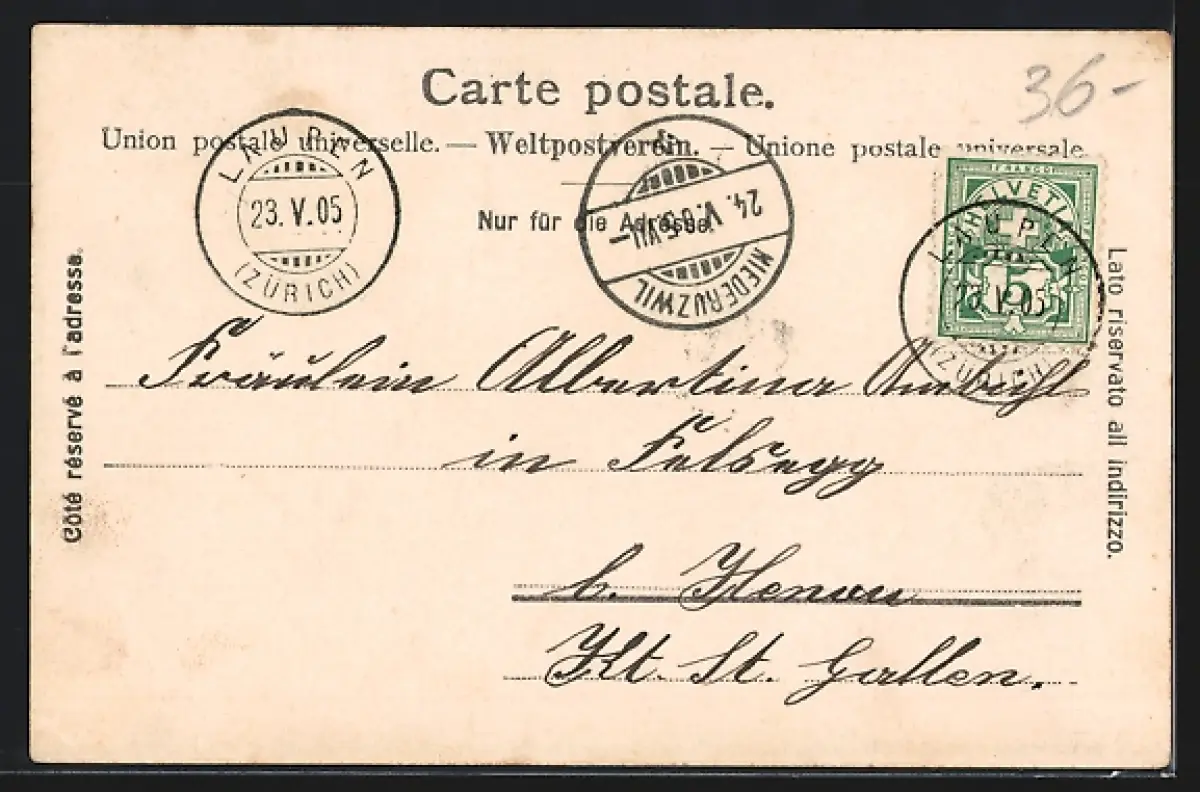 36-
Carte postale.
Union postale universelle. — Weltpostverein. — Unione postale universale
Nur für die Adresse.
LAUPEN
23.V.05
(ZÜRICH)
24.V.05.VII-
NIEDERUZWIL
FRANCO
HELVETIA
5
LAUPEN
23.V.05
(ZÜRICH)
Côté réservé à l'adresse.
Lato riservato all indirizzo.
Fräulein Albertina Ambühl
in Felsegg
b. Henau
Kt. St. Gallen.